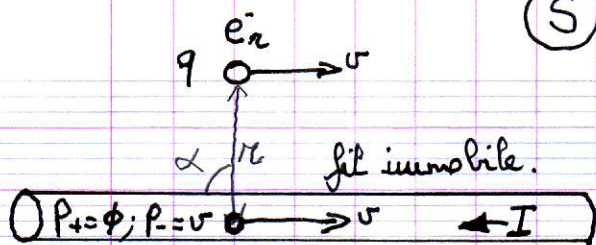 S
e⁻r
q v
α r fil immobile.
P₊=ϕ; P₋=v v I